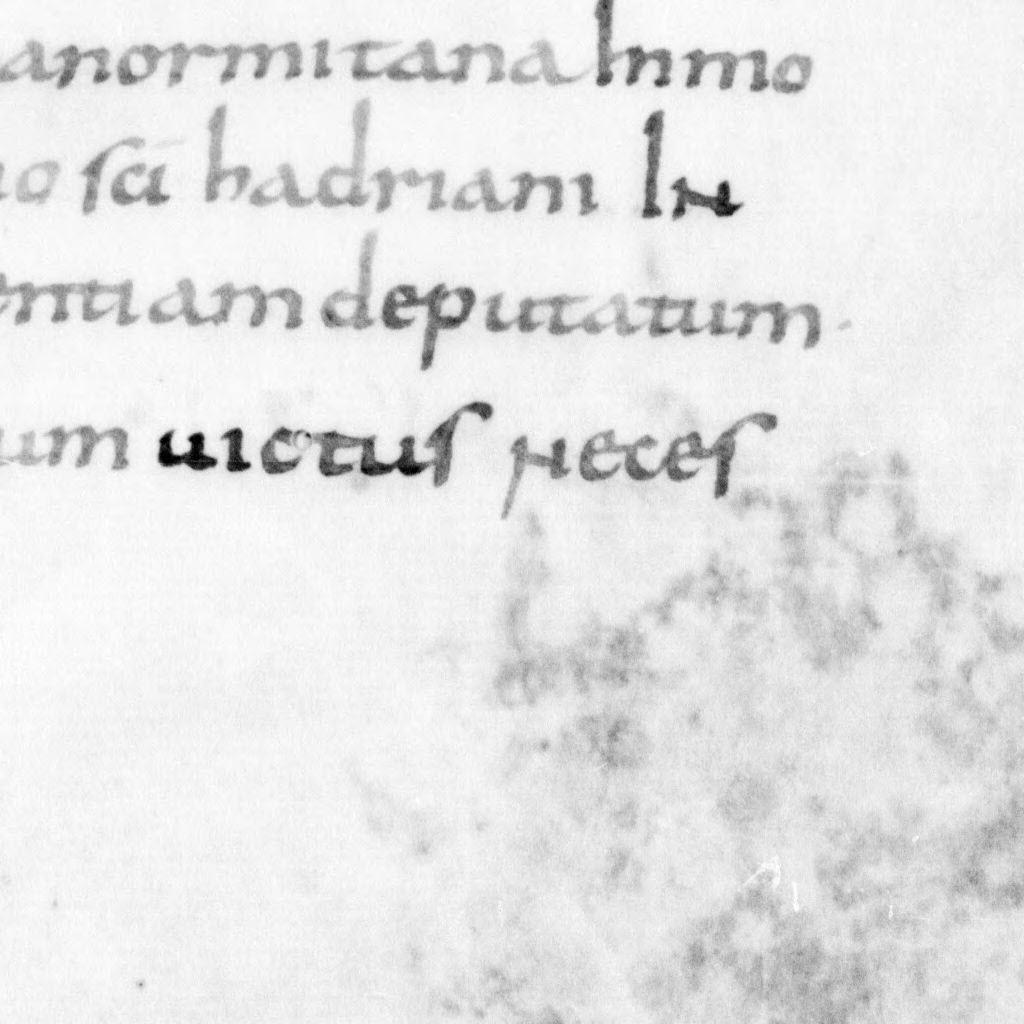 anormitana Inmo
io sci hadriani IN
entiam deputatum.
um uictus Neces